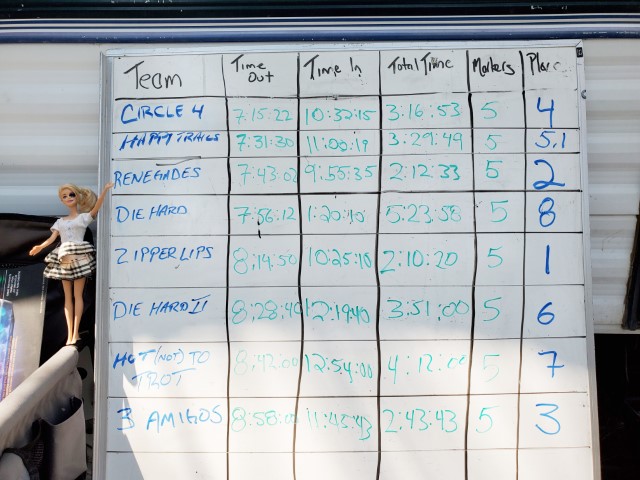 Team Time Out Time In Total Time Markers Place
CIRCLE 4 7:15:22 10:32:15 3:16:53 5 4
HAPPY TRAILS 7:31:30 11:00:19 3:29:49 5 5.1
RENEGADES 7:43:02 9:55:35 2:12:33 5 2
DIE HARD 7:56:12 1:20:10 5:23:58 5 8
ZIPPER LIPS 8:14:50 10:25:10 2:10:20 5 1
DIE HARD II 8:28:40 12:19:40 3:51:00 5 6
HOT (NOT) TO TROT 8:42:00 12:54:00 4:12:00 5 7
3 AMIGOS 8:58:00 11:43:43 2:43:43 5 3